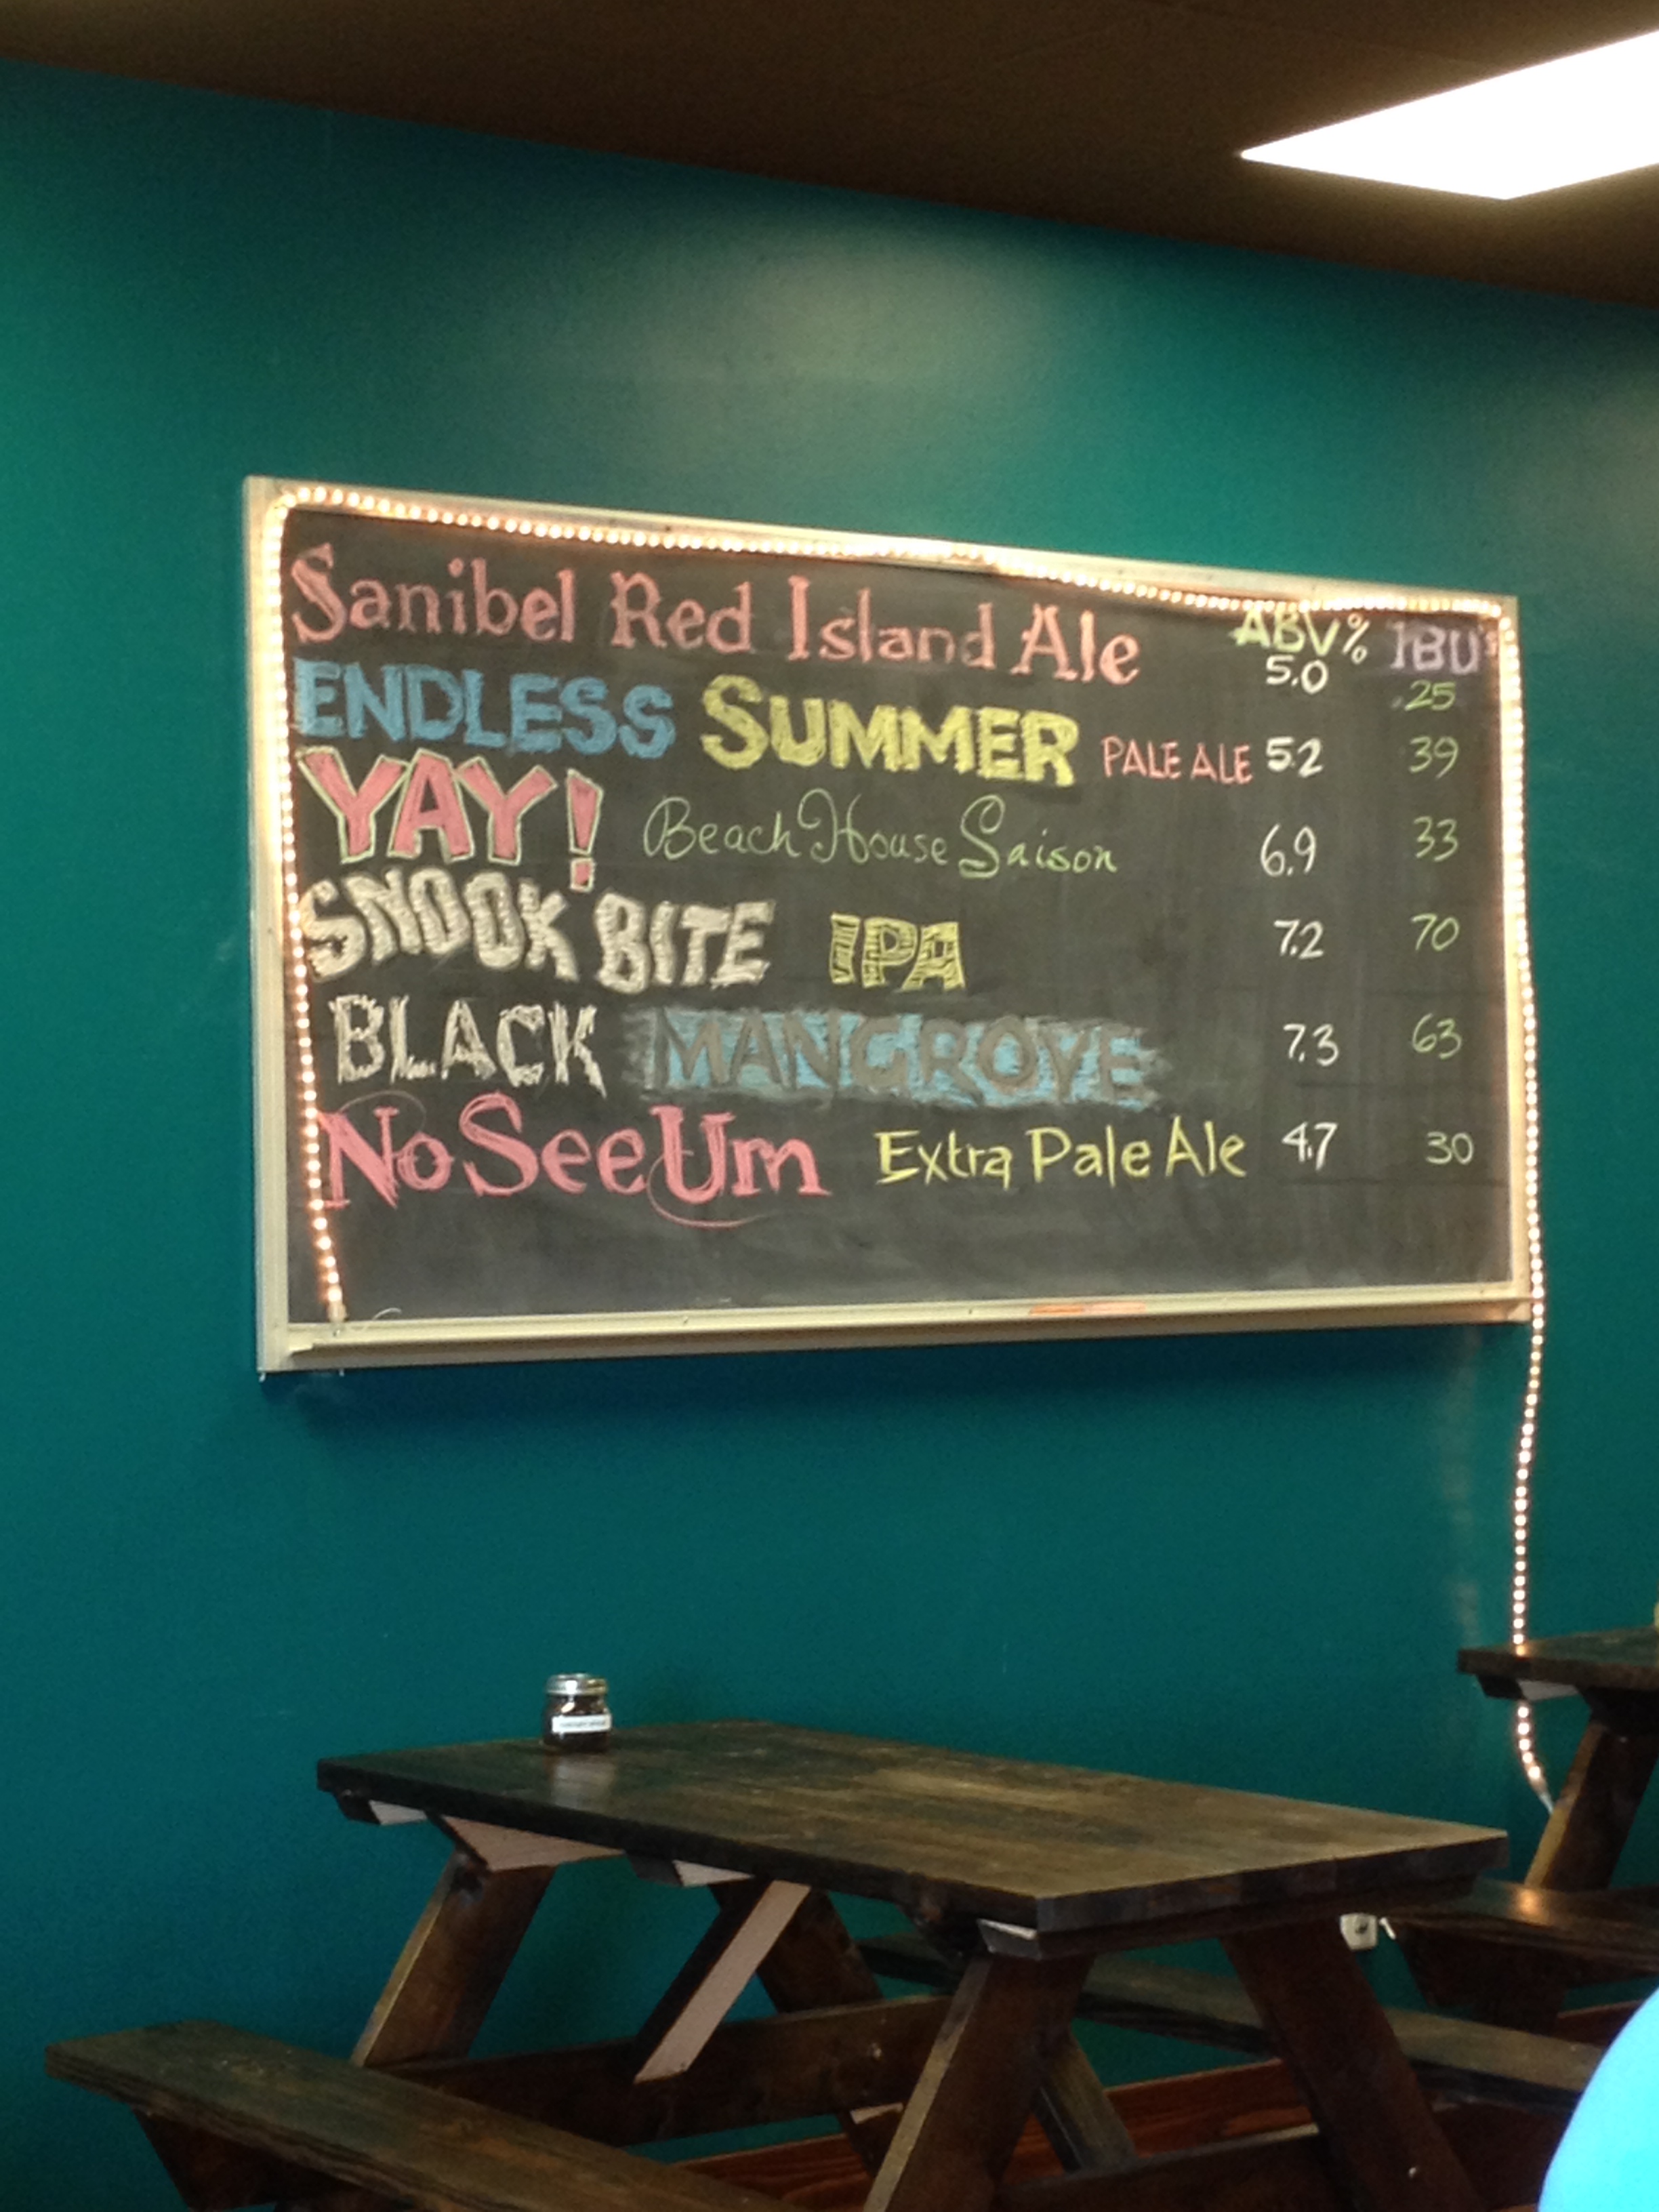 ABV% IBU's
Sanibel Red Island Ale 5.0 25
ENDLESS SUMMER PALE ALE 5.2 39
YAY! Beach House Saison 6.9 33
SNOOK BITE IPA 7.2 70
BLACK MANGROVE 7.3 63
No See Um Extra Pale Ale 4.7 30